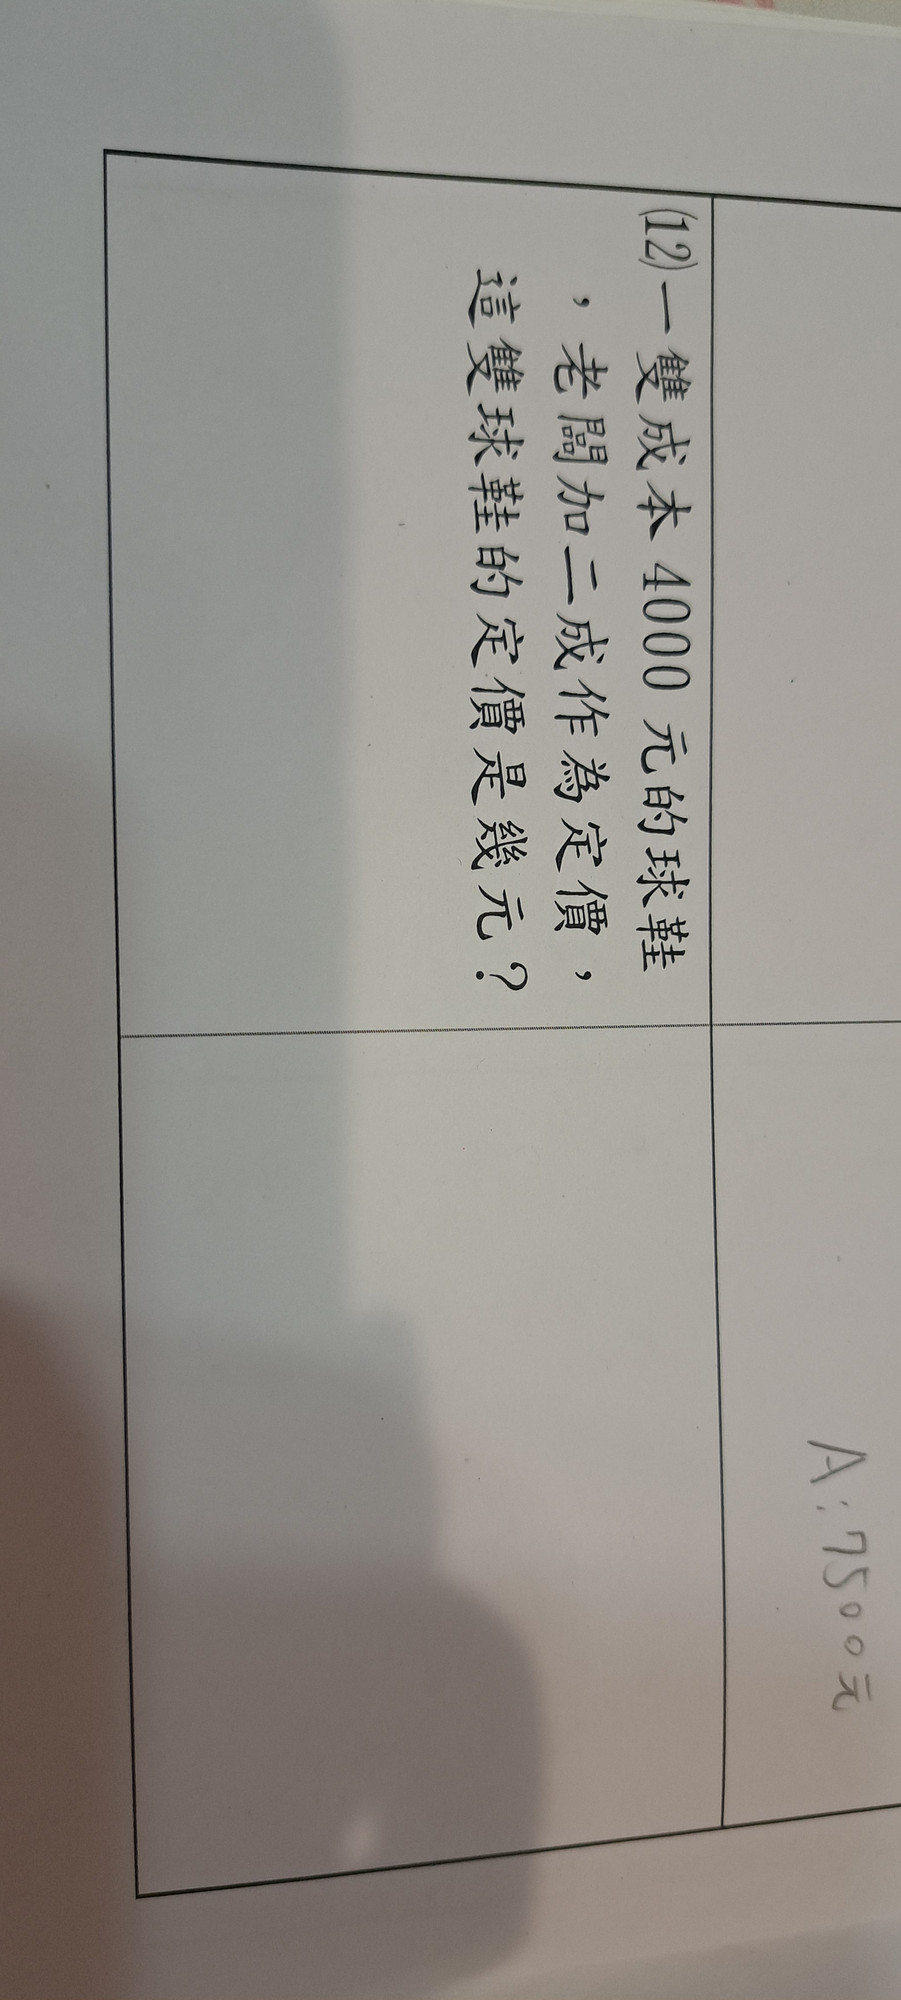 A：7500元
⑿一雙成本 4000 元的球鞋
，老闆加二成作為定價，
這雙球鞋的定價是幾元？